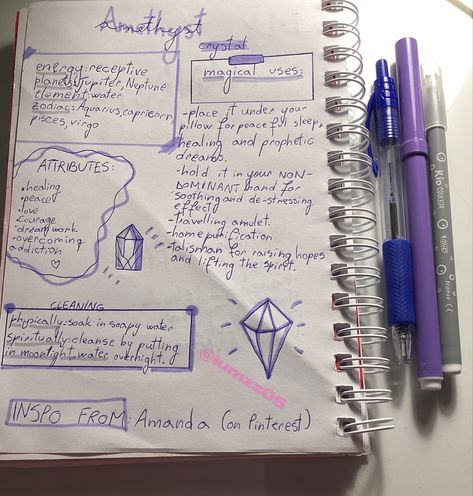 Amethyst
crystal
energy: receptive
planets: Jupiter, Neptune
Element: water
zodiac: Aquarius, capricorn,
pisces, virgo
magical uses:
-place it under your
pillow for peaceful sleep,
healing and prophetic
dreams.
-hold it in your NON-
DOMINANT hand for
soothing and de-stressing
effect
-travelling amulet.
-home purification
-talisman for raising hopes
and lifting the spirit.
ATTRIBUTES:
•healing
•peace
•love
•courage
•dreamwork
•overcoming
addiction
CLEANING
physically-soak in soapy water
spiritually-cleanse by putting
in moonlight water overnight.
@lumzz05
INSPO FROM: Amanda (on Pinterest)
Kio COLOUR